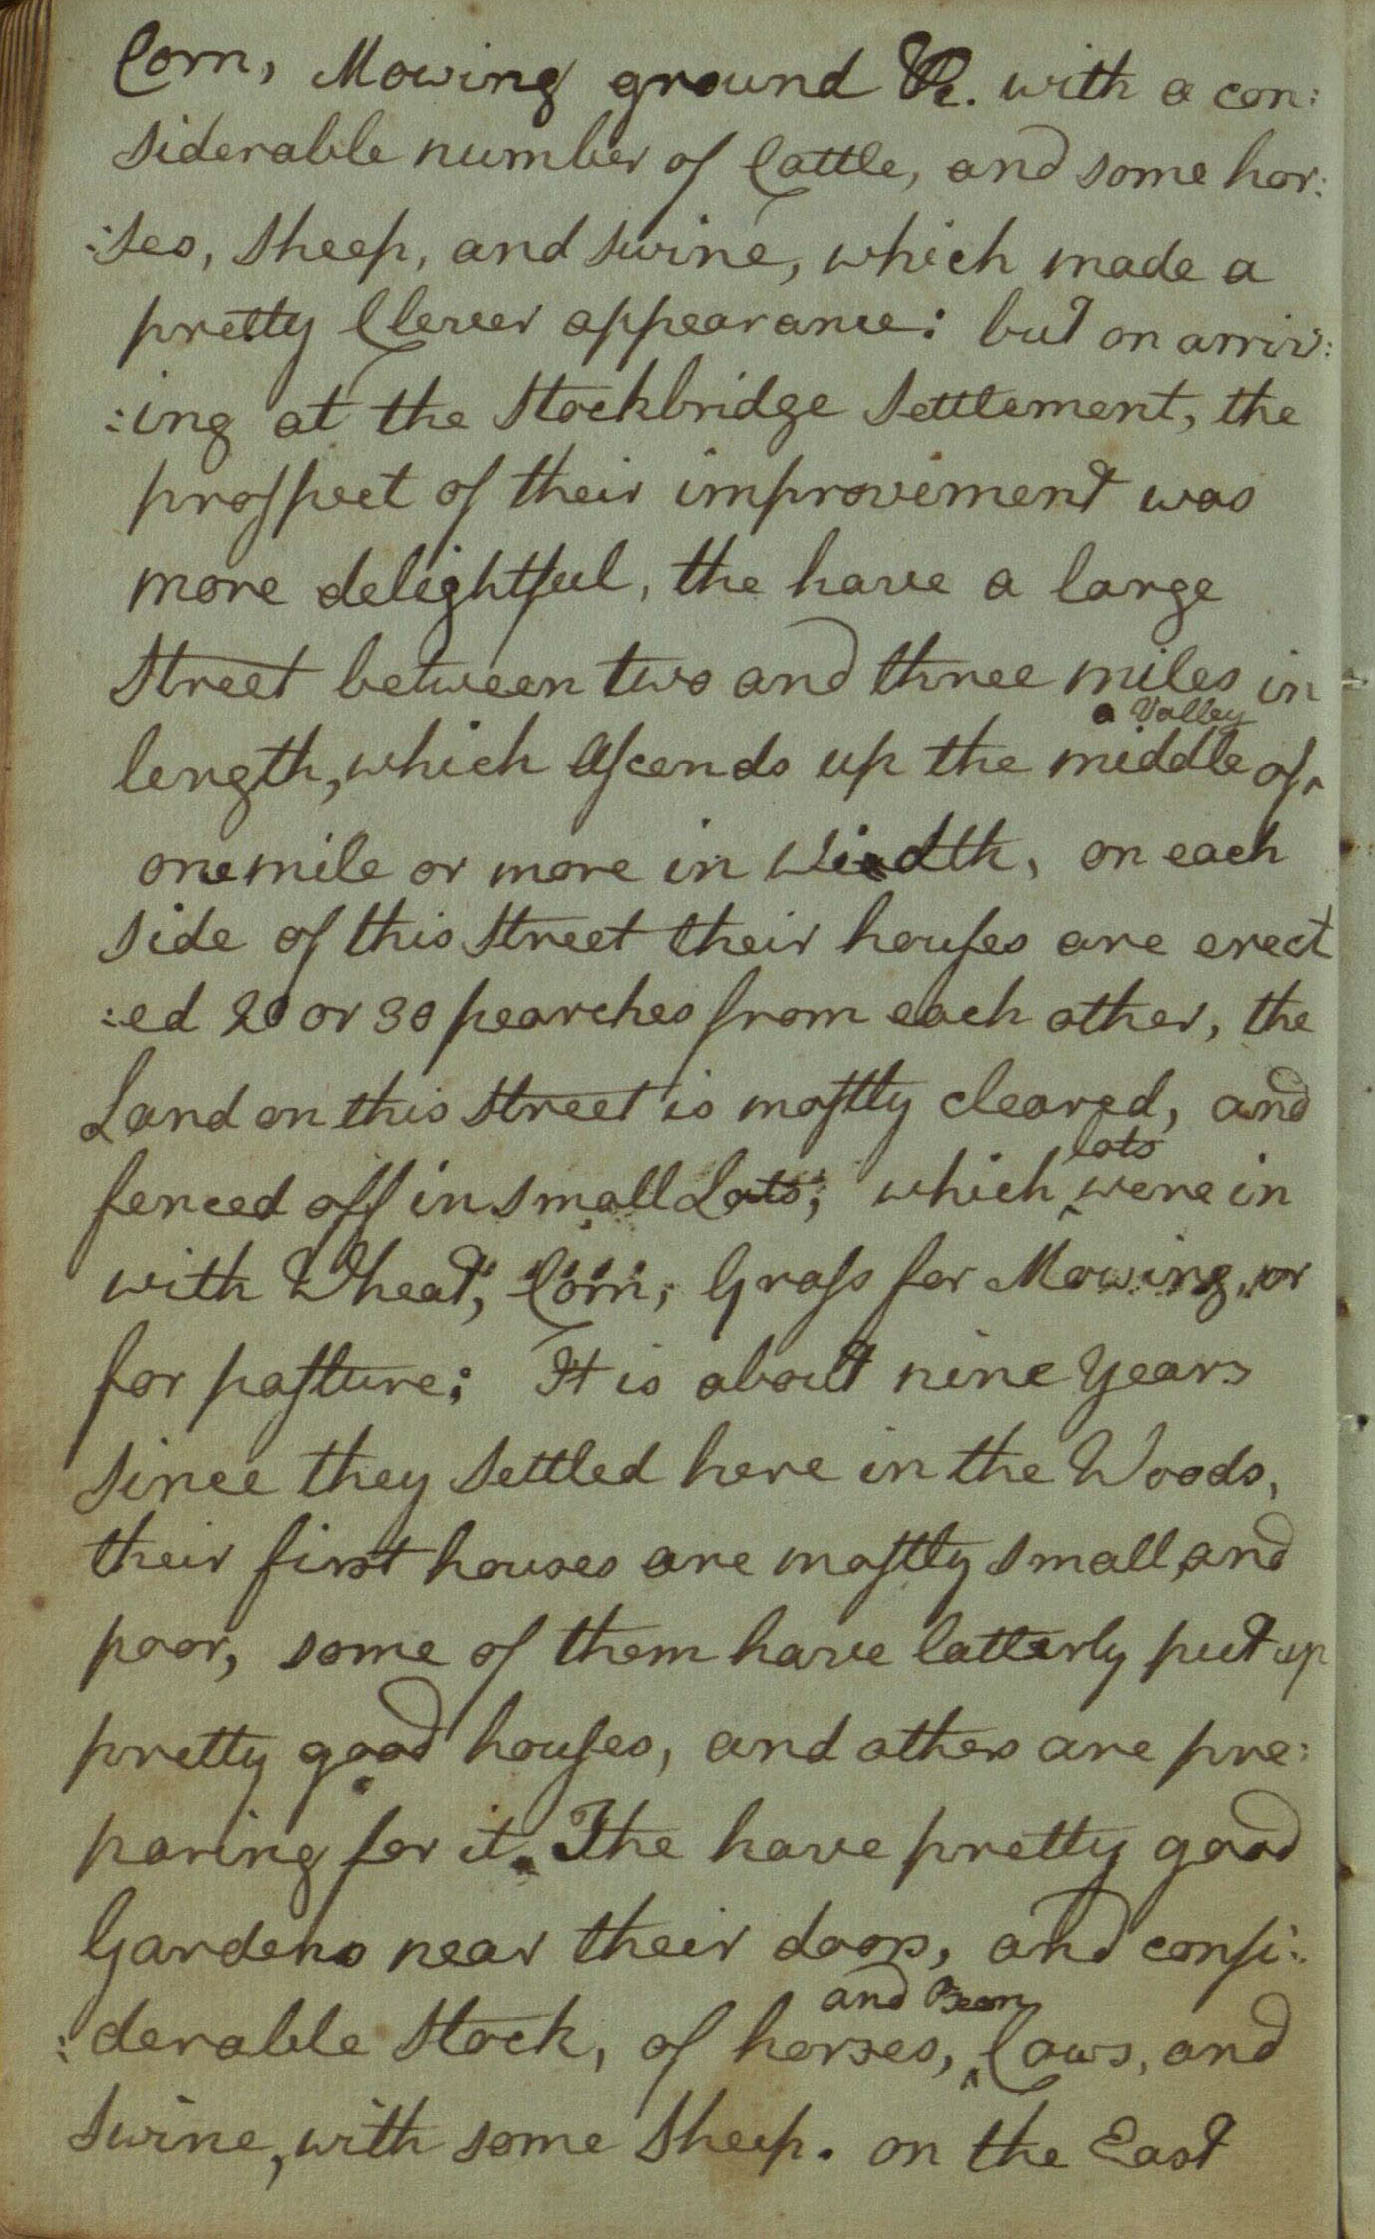 Corn, Mowing ground &c. with a con:
siderable number of Cattle, and some hor:
:ses, sheep, and swine, which made a
pretty Clever appearance: but on arriv:
:ing at the Stockbridge Settlement, the
prospect of their improvement was
more delightful, the have a large
Street between two and three miles in
a Valley
length, which Ascends up the middle of ^
one mile or more in Width, on each
side of this Street their houses are erect
:ed 20 or 30 pearches from each other, the
Land on this Street is mostly cleared, and
lots
fenced off in small Lots; which ^ were in
with Wheat, Corn, Grass for Mowing, or
for pasture; It is about nine Years
since they Settled here in the Woods,
their first houses are mostly small, and
poor, some of them have latterly put up
pretty good houses, and others are pre:
paring for it. The have pretty good
Gardens near their doors, and consi:
and
:derable Stock, of horses, ^ Cows, and
Swine, with some Sheep. on the East